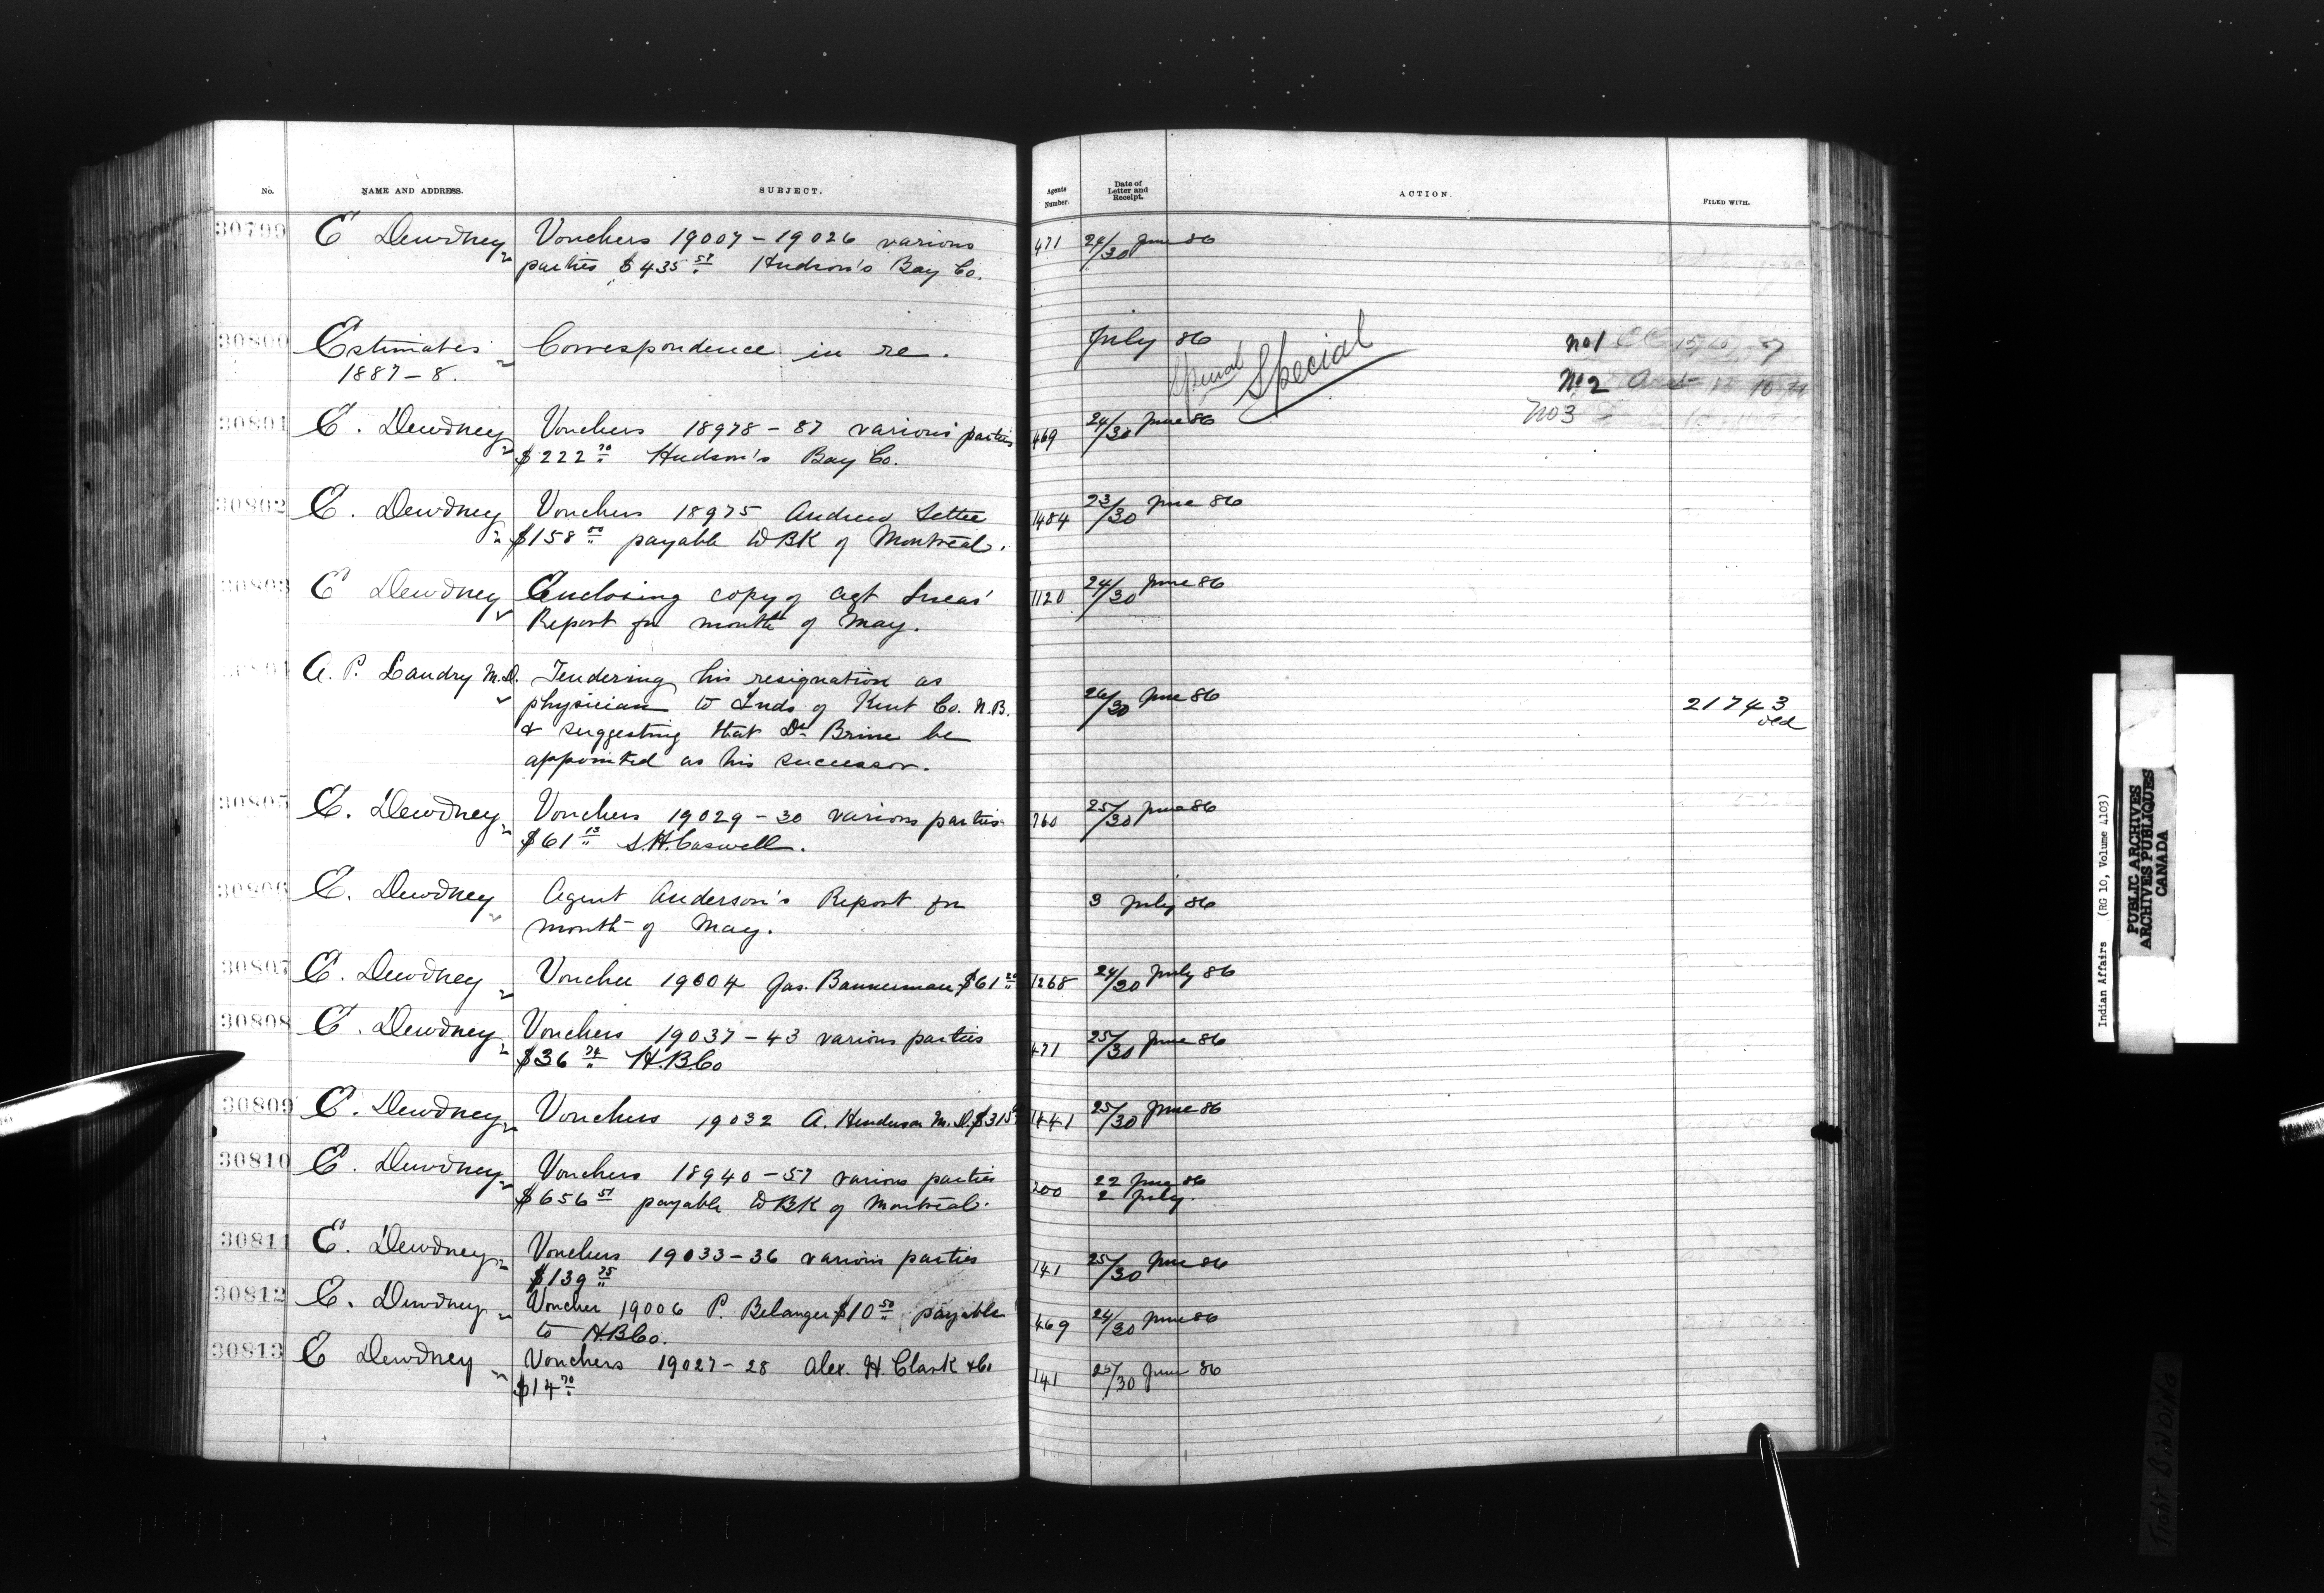 No. NAME AND ADDRESS. SUBJECT. Agents Number. Date of Letter and Receipt. ACTION. FILED WITH.
30799 E Dewdney Vouchers 19007 – 19026 various 471 24/30 June 86
parties $435 57 Hudson's Bay Co.
30800 Estimates Correspondence in re. July 86 Special Special No 1
1887 – 8. No 2
No 3
30801 E. Dewdney Vouchers 18978 – 87 various parties 469 24/30 June 86
$222 70 Hudson's Bay Co.
30802 E. Dewdney Vouchers 18975 Andrew Settee 1484 23/30 June 86
$158 00 payable to BK of Montreal.
30803 E Dewdney Enclosing copy of Agt Lucas' 1120 24/30 June 86
Report for month of May.
30804 A. P. Landry M.D. Tendering his resignation as
physician to Inds of Kent Co. N.B. 26/30 June 86 21743
& suggesting that Dr Brine be old
appointed as his successor.
30805 E. Dewdney Vouchers 19029 – 30 various parties 760 25/30 June 86
$61 13 S.H. Caswell.
30806 E. Dewdney Agent Anderson's Report for 3 July 86
month of May.
30807 E. Dewdney Voucher 19004 Jas. Bannerman $61 20 1268 24/30 July 86
30808 E. Dewdney Vouchers 19037 – 43 various parties 471 25/30 June 86
$36 74 H.B.Co
30809 E. Dewdney Vouchers 19032 A. Henderson M.D. $315 1441 25/30 June 86
30810 E. Dewdney Vouchers 18940 – 57 various parties 22 June 86
$656 51 payable to BK of Montreal. 200 2 July.
30811 E. Dewdney Vouchers 19033 – 36 various parties 141 25/30 June 86
$139 75
30812 E. Dewdney Voucher 19006 P. Belanger $10 50 payable 469 24/30 June 86
to H.B.Co.
30813 E Dewdney Vouchers 19027 – 28 Alex. H. Clark & Co 141 25/30 June 86
$14 70
Indian Affairs (RG 10, Volume 4103)
PUBLIC ARCHIVES
ARCHIVES PUBLIQUES
CANADA
TIGHT BINDING